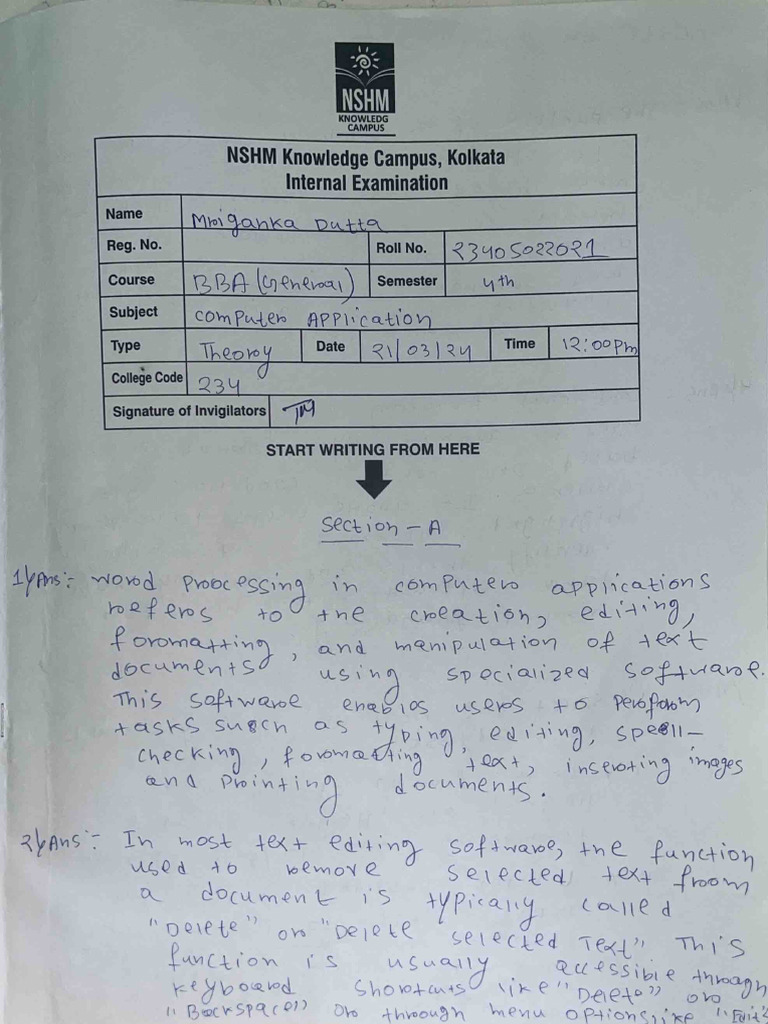 NSHM
KNOWLEDG
CAMPUS
NSHM Knowledge Campus, Kolkata
Internal Examination
Name Mriganka Dutta
Reg. No. Roll No. 23405022021
Course BBA (General) Semester 4th
Subject Computer APPlication
Type Theory Date 21/03/24 Time 12:00pm
College Code 234
Signature of Invigilators TM
START WRITING FROM HERE
Section - A
1) Ans:- Word processing in computer applications
refers to the creation, editing,
formatting, and manipulation of text
documents using specialized software.
This software enables users to perform
tasks such as typing, editing, spell-
checking, formatting text, inserting images
and printing documents.
2) Ans:- In most text editing software, the function
used to remove selected text from
a document is typically called
"Delete" or "Delete selected Text" This
function is usually accessible through
keyboard shortcuts like "Delete" or
"Backspace" or through menu options like "Edit"